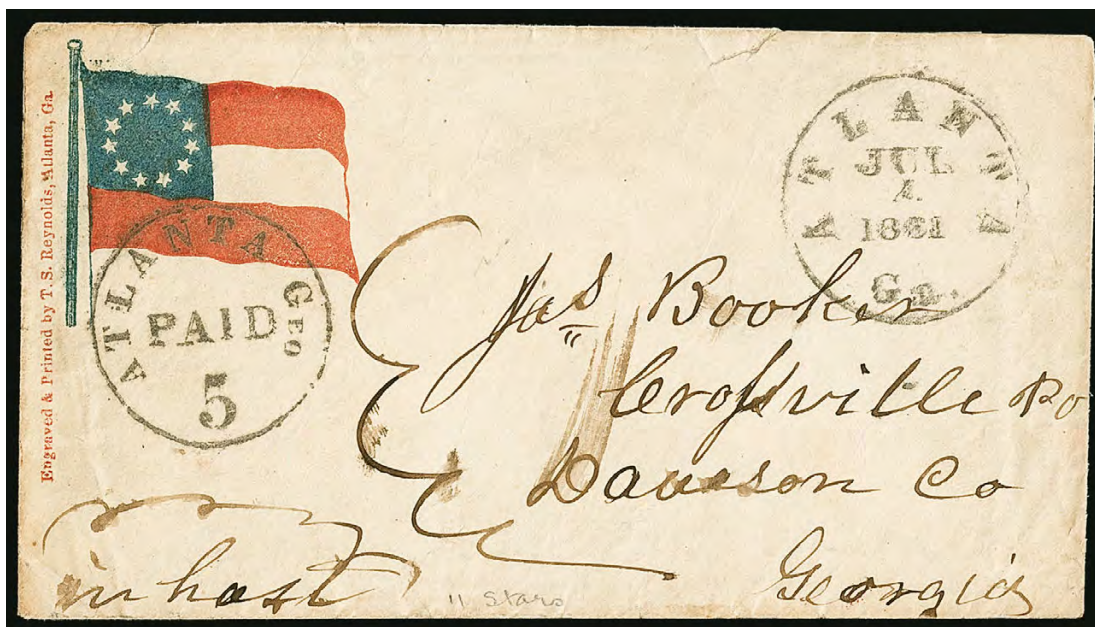 Engraved & Printed by T. S. Reynolds, Atlanta, Ga.
ATLANTA
JUL
1861
Ga.
ATLANTA GEO
PAID
5
Jas Booker
Crossville Po
Dawson Co
Georgia
in hast
11 Stars